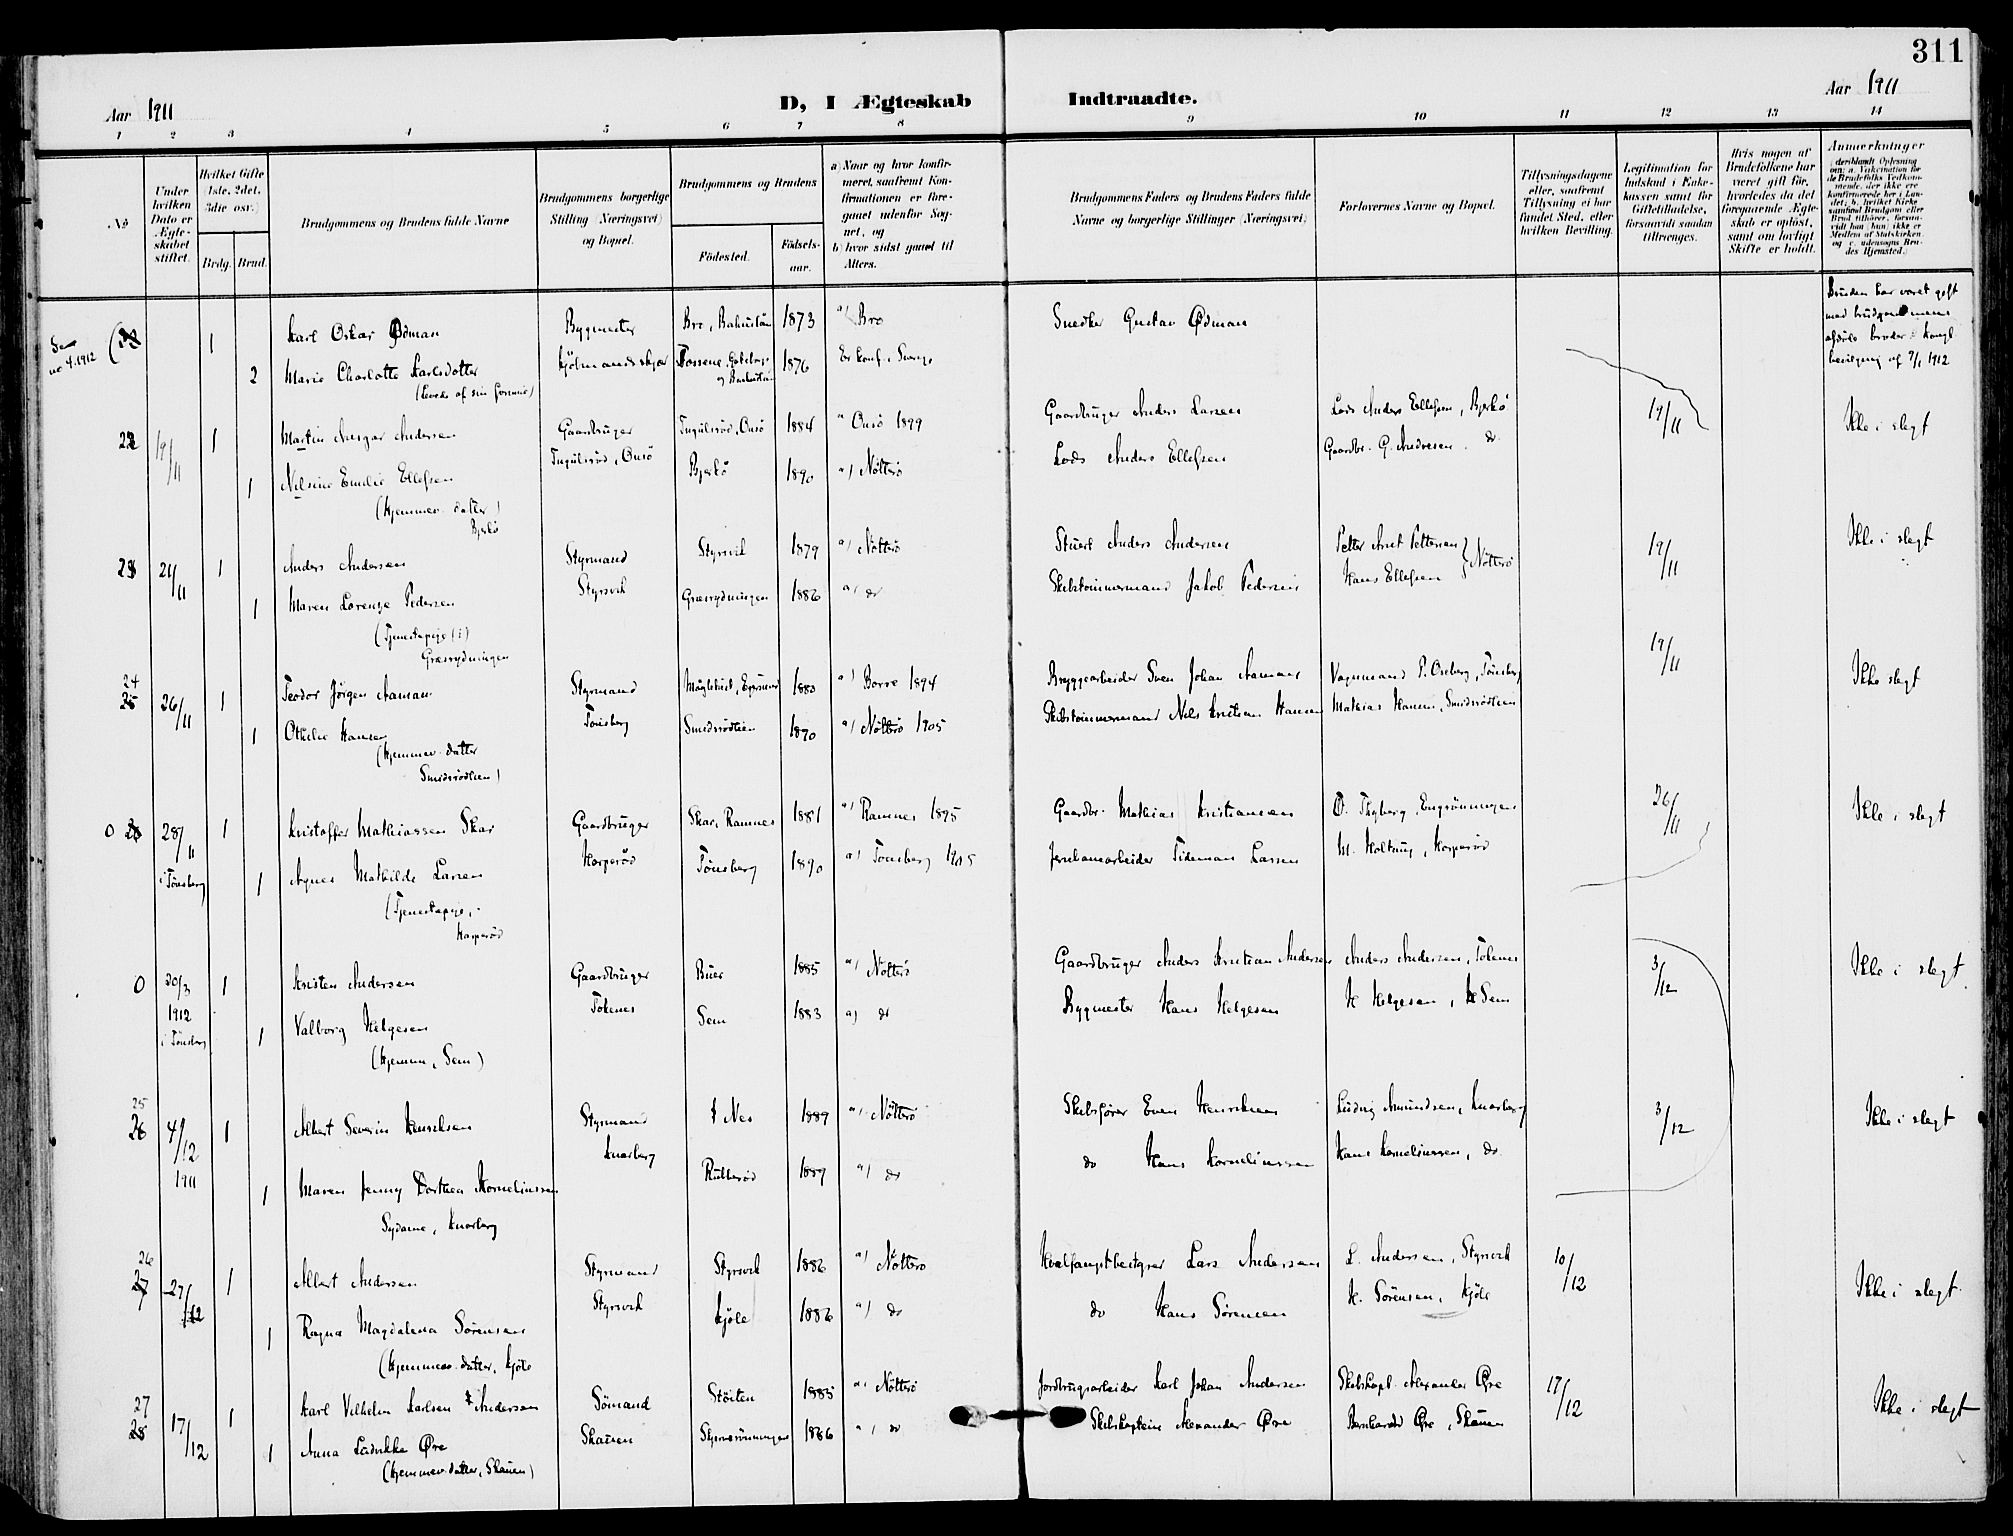 311
Aar 1911
D, I Ægteskab Indtraadte.
Aar 1911
1 2 3 4 5 6 7 8 9 10 11 12 13 14
No
Under hvilken Dato er Ægteskabet stiftet.
Hvilket Gifte (1ste, 2det, 3die osv.)
Brdg. Brud.
Brudgommens og Brudens fulde Navne
Brudgommens borgerlige Stilling (Næringsvei) og Bopæl.
Brudgommens og Brudens
Födested.
Födselsaar.
a) Naar og hvor konfirmeret, saafremt Konfirmationen er foregaaet udenfor Sognet, og
b) hvor sidst gaaet til Alters.
Brudgommens Faders og Brudens Faders fulde Navne og borgerlige Stillinger (Næringsvei)
Forlovernes Navne og Bopæl.
Tillysningsdagene eller, saafremt Tillysning ei har fundet Sted, efter hvilken Bevilling.
Legitimation for Indskud i Enkekassen samt for Giftetilladelse, forsaavidt saadan tiltrænges.
Hvis nogen af Brudefolkene har været gift før, hvorledes da det foregaaende Ægteskab er opløst, samt om lovligt Skifte er holdt.
Anmerkninger
(deriblandt Oplysning om: a. Vakcination for de Brudefolks Vedkommende, der ikke ere konfirmerede her i Landet; b. hvilket Kirkesamfund Brudgom eller Brud tilhører, forsaavidt han (hun) ikke er Medlem af Statskirken, og c. udensogns Brudes Hjemsted.)
Se no 4. 1912
1 Karl Oskar Ødman Bygmester Bro, Bahuslän 1873 a) Bro Snedker Gustav Ødman
2 Marie Charlotte Karlsdotter Kjölmandskjær Tossene, Göteborgs og Bahuslän 1876 Er konf. i Sverge
Bruden har været gift med brudgommens afdøde broder. Kongl. bevilgning af 7/1 1912
22 19/11 1 Martin Ansgar Andersen Gaardbruger Ingulsröd, Onsö 1884 a) Onsö 1899 Gaardbruger Anders Larsen Lods Anders Ellefsen, Bjerkö 19/11 Ikke i slegt
1 Nelsine Emilie Ellefsen Ingulsröd, Onsö Bjerkö 1890 a) Nötterö Lods Anders Ellefsen Gaardbr. G. Andresen do
(Hjemmev. datter)
Bjerkö
23 21/11 1 Anders Andersen Styrmand Styrsvik 1879 a) Nötterö Stuert Anders Andersen Petter Arnt Pettersen } Nötterö 19/11 Ikke i slegt
1 Maren Lorenze Pedersen Styrsvik Græsrydningen 1886 a) do Skibstömmermand Jakob Pedersen Hans Ellefsen
(Tjenestepige (i)
Græsrydningen
24 26/11 1 Teodor Jörgen Aaman Styrmand 1880 a) Borre 1894 Bryggearbeider Sven Johan Aaman Vognmand P. Oseberg, Tönsberg 19/11 Ikke slegt
1 Othilie Hansen Tönsberg Smidsrödveien 1890 a) Nötterö 1905 Skibstömmermand Nils Kristian Hansen Mathias Hansen, Smidsrödveien
(Hjemmev. datter
Smidsrödveien)
0 28/11 1 Kristoffer Mathiassen Skar Gaardbruger Skar, Ramnes 1881 a) Ramnes 1895 Gaardbr. Mathias Kristiansen O. Thyberg, Engrönningen 26/11 Ikke i slegt
i Tönsberg 1 Agnes Mathilde Larsen Horperöd Tönsberg 1890 a) Tönsberg 1905 Jernbanearbeider Tideman Larsen M. Holtung, Horperöd
(Tjenestepige,
Horperöd
0 30/3 1912 1 Kristen Andersen Gaardbruger Buer 1885 a) Nötterö Gaardbruger Anders Kristian Andersen Anders Andersen, Tokenes 3/12 Ikke i slegt
i Tönsberg 1 Valborg Helgesen Tokenes Sem 1883 a) do Bygmester Hans Helgesen H Helgesen, Sem
(Hjemm, Sem)
25 4/12 1911 1 Albert Severin Henriksen Styrmand Nes 1889 a) Nötterö Skibsförer Even Henriksen Ludvig Amundsen, Knarberg 3/12 Ikke i slegt
1 Maren Jenny Dorthea Korneliussen Knarberg 1889 a) do do Hans Korneliussen Hans Korneliussen, do
Sydame, Knarberg
26 27/12 1 Albert Andersen Styrmand Styrsvik 1886 a) Nötterö Hvalfangstbestyrer Lars Andersen L. Andersen, Styrsvik 10/12 Ikke i slegt
1 Ragna Magdalena Sörensen Styrsvik Kjöle 1886 a) do do Hans Sörensen H. Sörensen, Kjöle
(Hjemmev. datter, Kjöle
27 17/12 1 Karl Vilhelm Karlsen Andersen Sömand Stöiten 1885 a) Nötterö Jordbrugsarbeider Karl Johan Andersen Skibskapt. Alexander Øre 17/12 Ikke i slegt
1 Anna Ludvikke Øre Skauen 1886 a) do Skibskaptein Alexander Øre Bernhard Øre, Skauen
(Hjemmev. datter, Skauen)